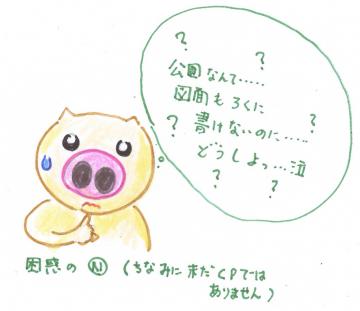 ? ?
公園なんて‥‥‥
図面もろくに
? 書けないのに‥‥‥ ?
どうしよっ…泣
? ?
困惑の Ⓝ (ちなみに まだ CPでは
ありません)